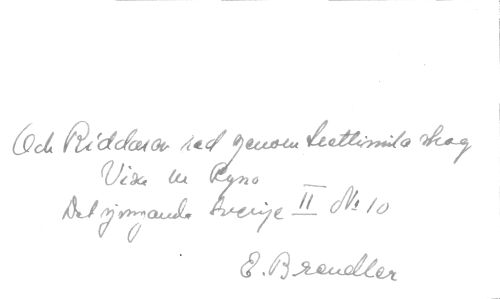 Och Riddaren red genom trettimila skog
Visa ur Ryno
Det sjungande Sverige II No 10
E. Brendler